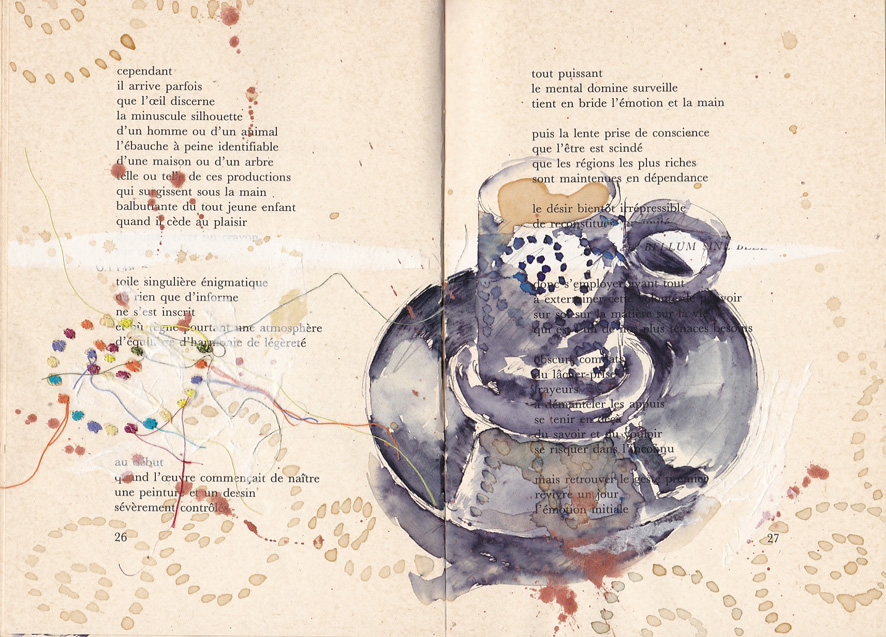 cependant
il arrive parfois
que l'œil discerne
la minuscule silhouette
d'un homme ou d'un animal
l'ébauche à peine identifiable
d'une maison ou d'un arbre
telle ou telle de ces productions
qui surgissent sous la main
balbutiante du tout jeune enfant
quand il cède au plaisir
toile singulière énigmatique
où rien que d'informe
ne s'est inscrit
et où règne pourtant une atmosphère
d'équilibre d'harmonie de légèreté
au début
quand l'œuvre commençait de naître
une peinture et un dessin
sévèrement contrôlés
26
tout puissant
le mental domine surveille
tient en bride l'émotion et la main
puis la lente prise de conscience
que l'être est scindé
que les régions les plus riches
sont maintenues en dépendance
le désir bientôt irrépressible
de reconstituer
BELLUM SINE
donc s'employer avant tout
à exterminer cette volonté de pouvoir
sur soi sur la matière sur la vie
qui est l'un de nos plus tenaces besoins
obscurs combats
du lâcher-prise
frayeurs
à démanteler les appuis
se tenir en deçà
du savoir et du vouloir
se risquer dans l'inconnu
mais retrouver le geste premier
revivre un jour
l'émotion initiale
27